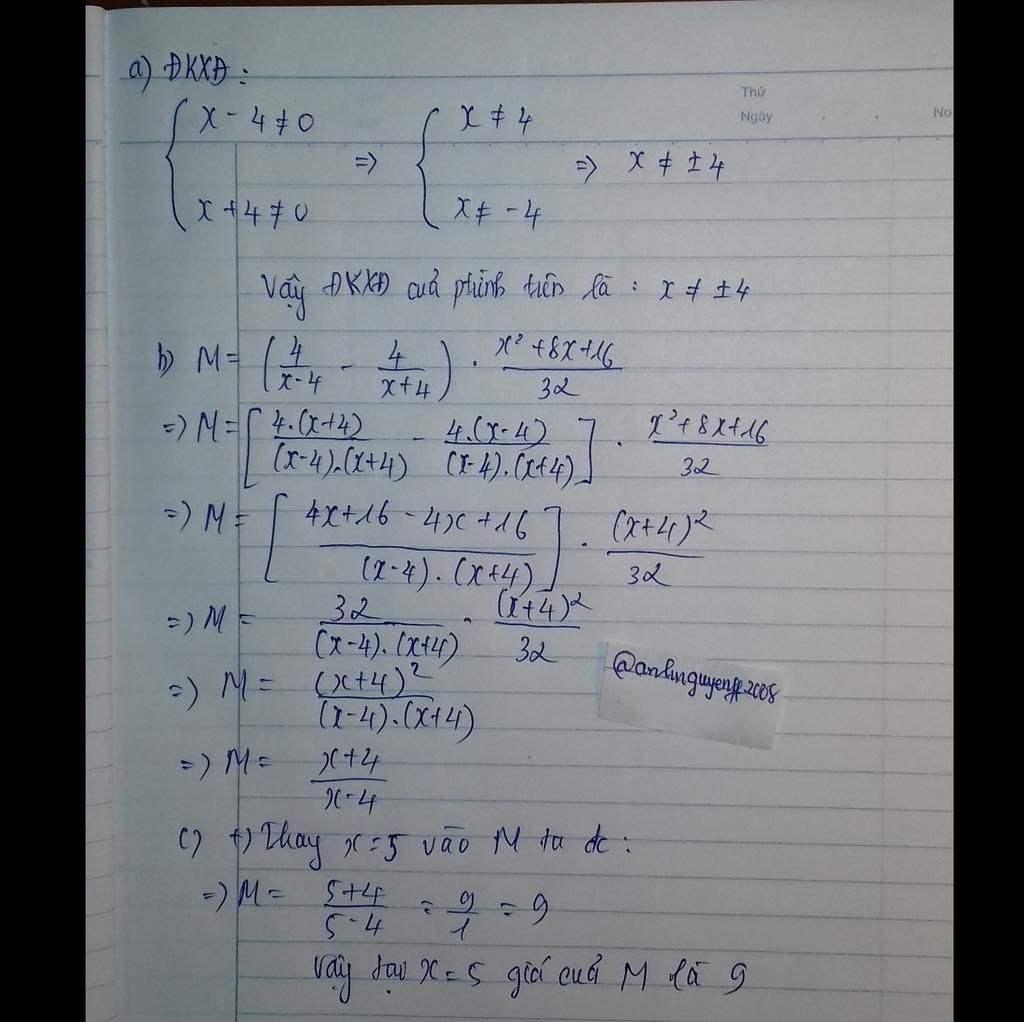 a) ĐKXĐ:
Thứ
Ngày
No
{ x - 4 ≠ 0 => { x ≠ 4 => x ≠ ±4
x + 4 ≠ 0 x ≠ -4
Vậy ĐKXĐ của phình trên là: x ≠ ±4
b) M = (4/(x-4) - 4/(x+4)) . (x²+8x+16)/32
=> M = [4.(x+4)/((x-4).(x+4)) - 4.(x-4)/((x-4).(x+4))] . (x²+8x+16)/32
=> M = [(4x+16-4x+16)/((x-4).(x+4))] . (x+4)²/32
=> M = 32/((x-4).(x+4)) . (x+4)²/32
=> M = (x+4)²/((x-4).(x+4))
=> M = (x+4)/(x-4)
c) +) Thay x=5 vào M ta đc:
=> M = (5+4)/(5-4) = 9/1 = 9
Vậy tại x=5 giá của M là 9